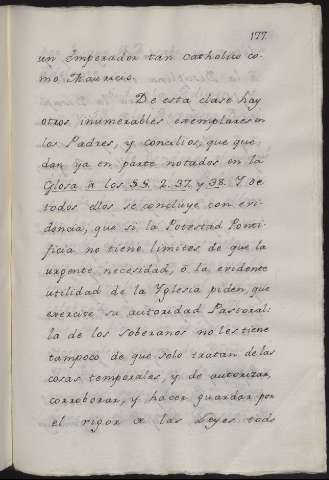 177.
un Emperador tan catholico co-
mo Mauricio.
De esta clase hay
otros inumerables exemplares en
los Padres, y concilios, que que-
dan ya en parte notados en la
Glosa à los §.§. 2. 37. y 38. Y de
todos ellos se concluye con evi-
dencia, que si la Potestad Ponti-
ficia no tiene limites de que la
urgente necesidad, ò la evidente
utilidad de la Yglesia piden, que
exercite su autoridad Pastoral:
la de los Soberanos no les tiene
tampoco de que solo tratan de las
cosas temporales, y de autorizar,
corroborar, y hacer guardar por
el rigor de las Leyes todo